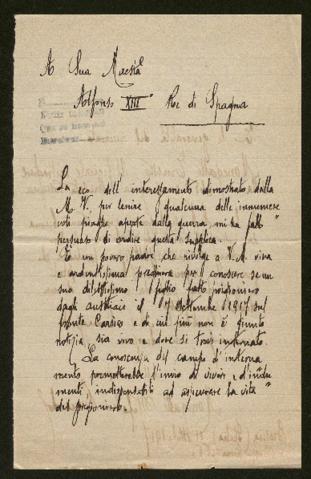 A Sua Maestà
Alfonso XIII° Re di Spagna
La eco dell'interessamento dimostrato dalla
M. V. per lenire qualcuna delle immense
piaghe aperte dalla guerra, mi ha fatto
persuaso di ordire questa supplica.
È un povero padre che rivolge a V. M. viva
e ardentissima preghiera per conoscere se un
suo dilettissimo figlio fatto prigioniero
dagli austriaci il 17 settembre 1917 sul
fronte Carsico e di cui più non è giunta
notizia, sia vivo e dove si trovi internato.
La conoscenza del campo d'interna
mento permetterebbe l'invio di viveri e d'indu
menti indispensabili ad assicurare la vita
del prigioniero.